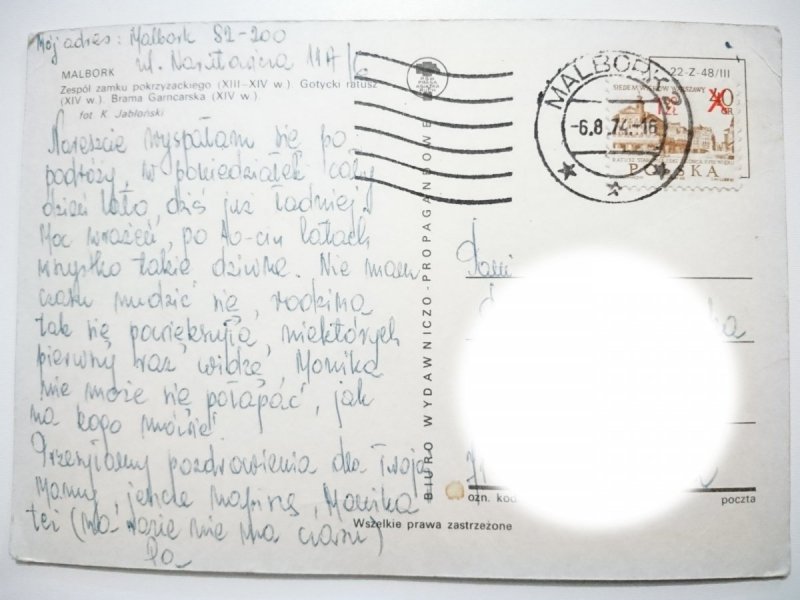 Mój adres: Malbork 82-200
ul.
MALBORK
Zespół zamku pokrzyżackiego (XIII–XIV w.) Gotycki ratusz
(XIV w.). Brama Garncarska (XIV w.).
fot. K. Jabłoński
Nareszcie wyspałam się po
podróży, w poniedziałek cały
dzień lało, dziś już ładniej.
Moc wrażeń, po latach
wszystko takie dziwne. Nie mam
czasu nudzić się, rodzina
tak się powiększyła, niektórych
pierwszy raz widzę, Monika
nie może się połapać, jak
na kogo mówić
Przesyłamy pozdrowienia dla Twojej
Mamy, jeszcze napiszę, Monika
też (na razie nie ma czasu)
Pa
BIURO WYDAWNICZO-PROPAGANDOWE
Wszelkie prawa zastrzeżone
22-Z-48/III
MALBORK 2
-6.8.74-16
SIEDEM WIEKÓW WARSZAWY
40 GR
POLSKA
Pani
ozn. kod
poczta